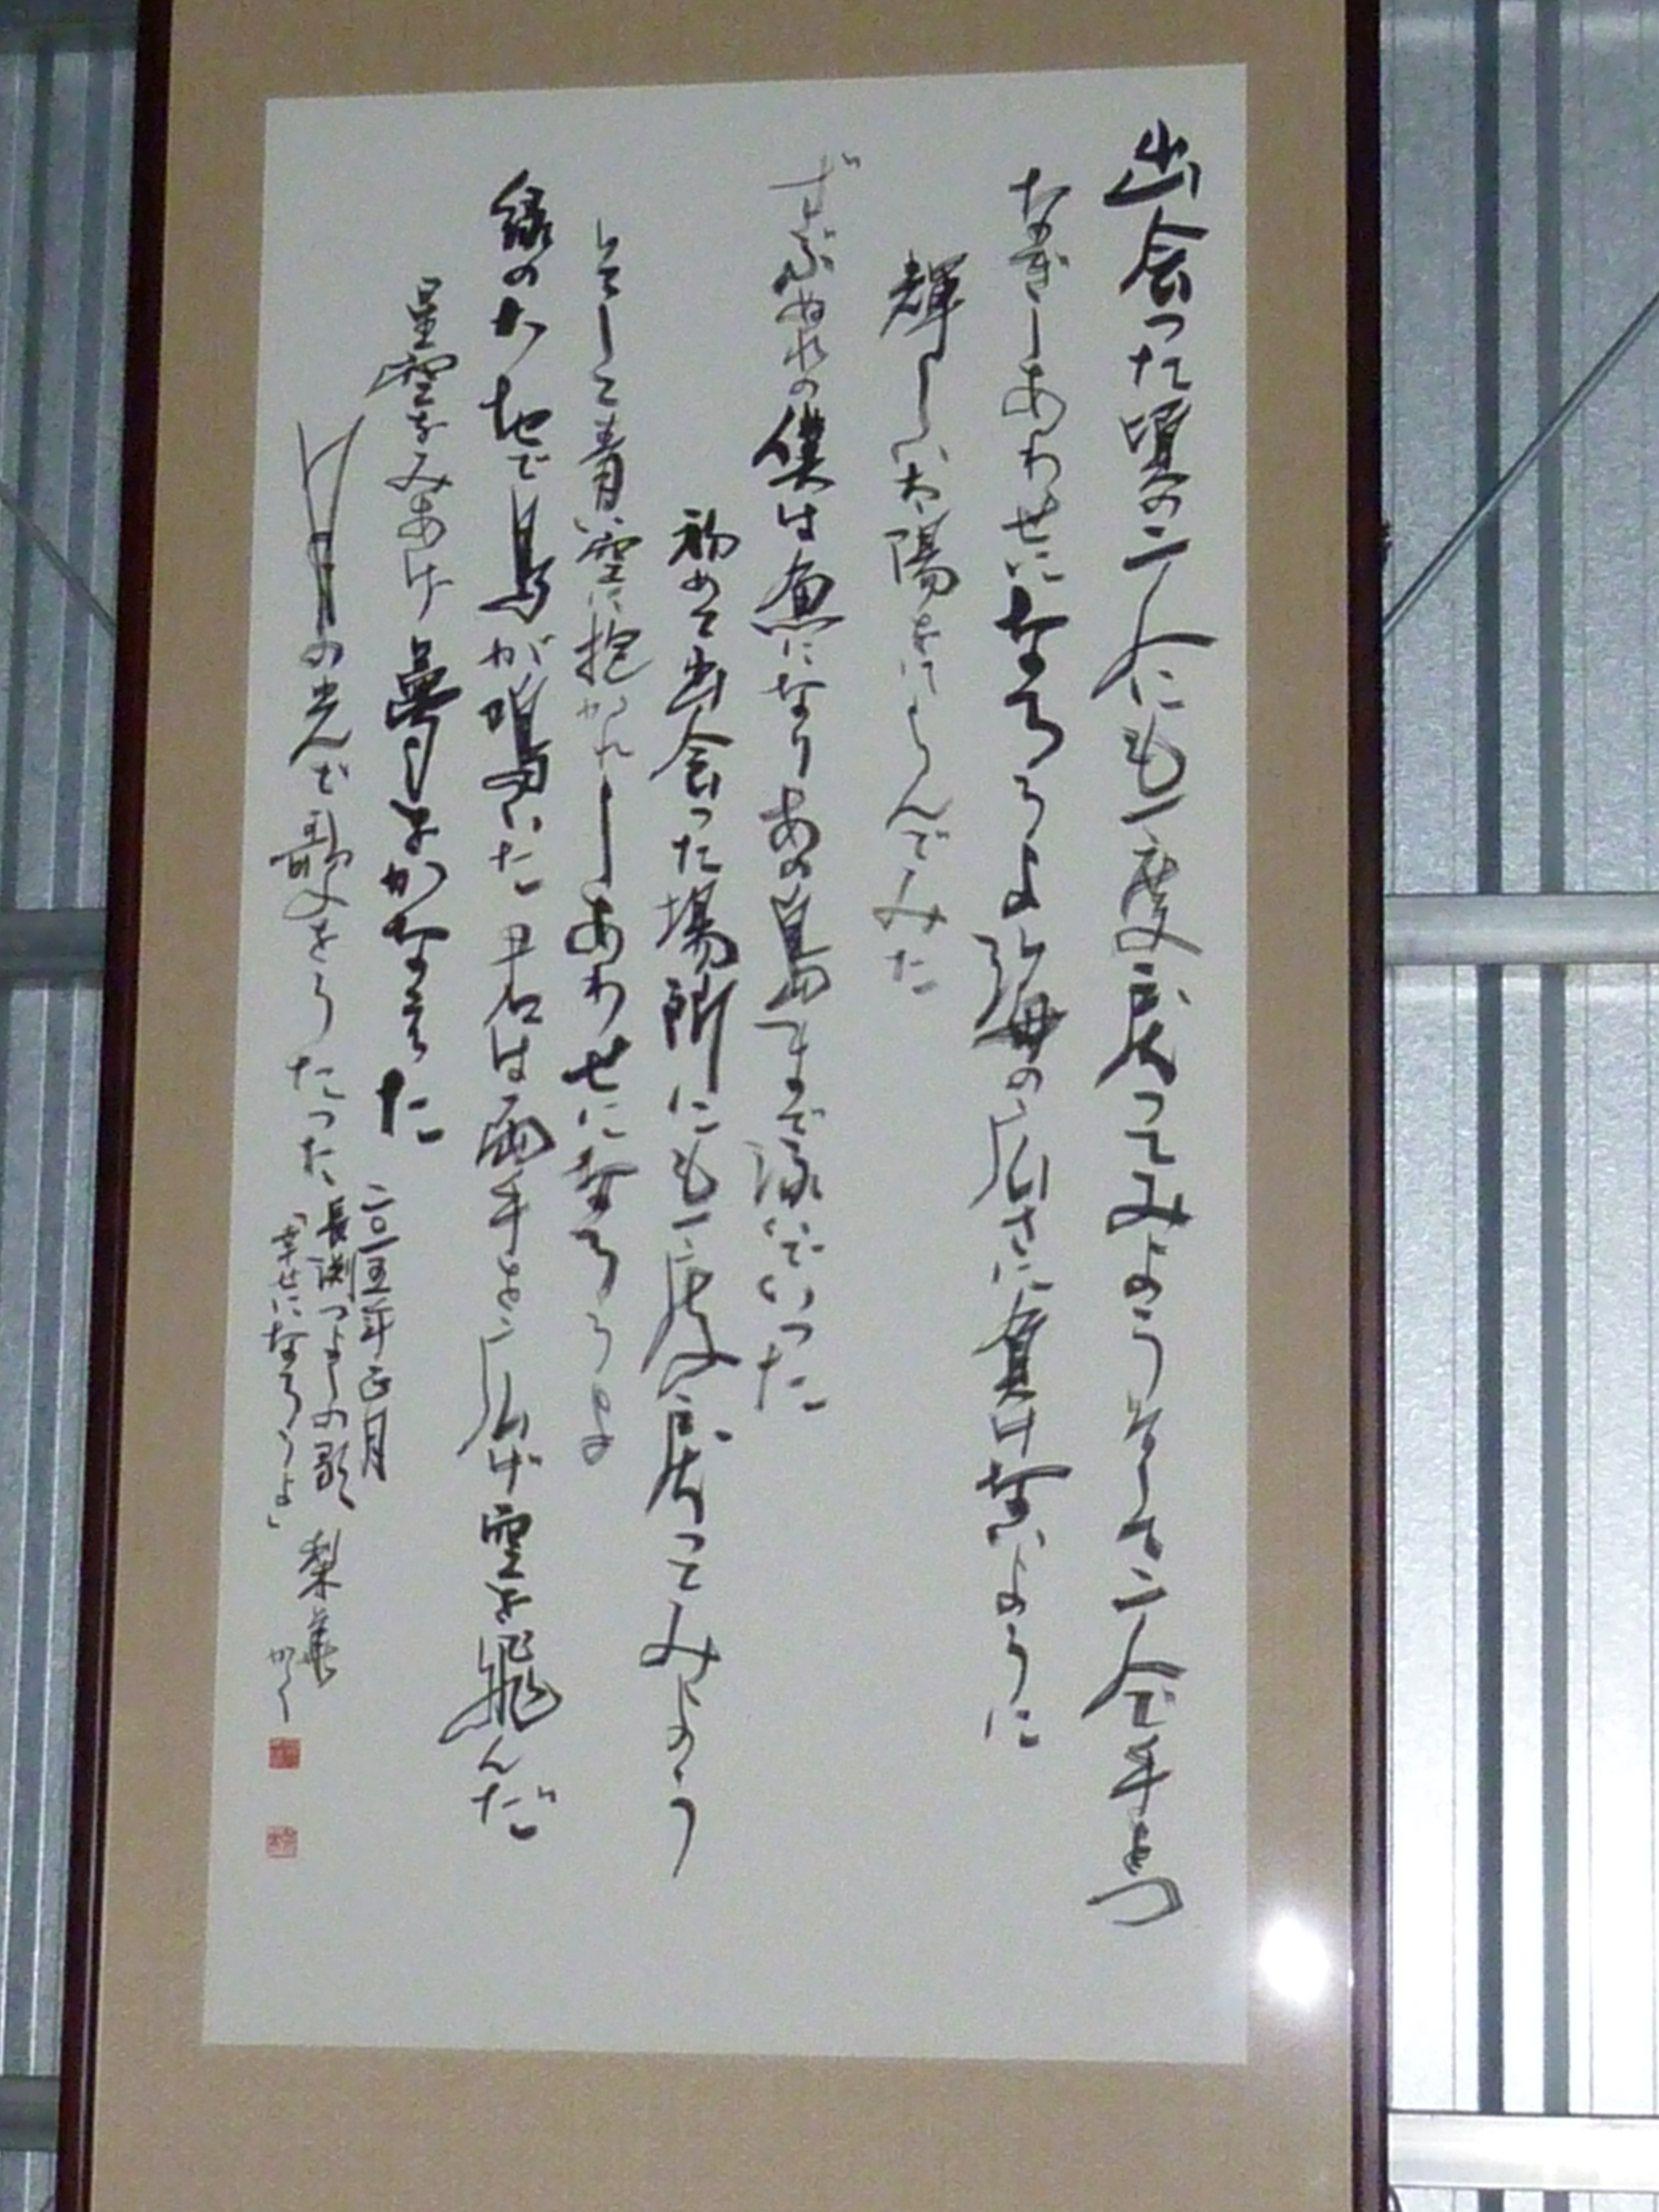 出会った頃の二人にも一度戻ってみようそして二人で手をつ
なぎしあわせになろうよ海の広さに負けないように
輝しい太陽をにらんでみた
ずぶぬれの僕は魚になりあの島まで泳いでいった
初めて出会った場所にも一度戻ってみよう
そして青い空に抱かれしあわせになろうよ
緑の大地で鳥が鳴いた君は両手を広げ空を飛んだ
星空をみあげ夢をかなえた
月の光で歌をうたった
二〇一五年正月
長渕つよしの歌
「幸せになろうよ」
かく